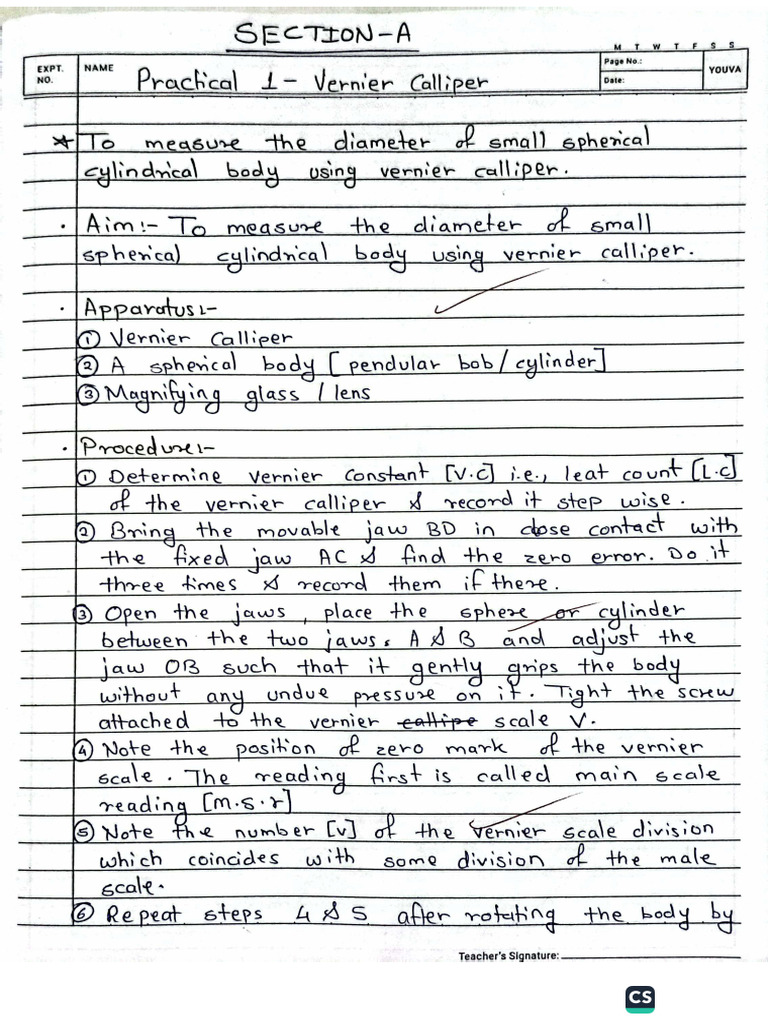 SECTION-A
M T W T F S S
EXPT. NO.
NAME
Practical 1 - Vernier Calliper
Page No.:
Date:
YOUVA
* To measure the diameter of small spherical
cylindrical body using vernier calliper.
. Aim:- To measure the diameter of small
spherical cylindrical body using vernier calliper.
. Apparatus:-
① Vernier Calliper
② A spherical body [pendular bob/cylinder]
③ Magnifying glass / lens
. Procedure:-
① Determine vernier constant [V.C] i.e., leat count [L.C]
of the vernier calliper & record it step wise.
② Bring the movable jaw BD in close contact with
the fixed jaw AC & find the zero error. Do it
three times & record them if there.
③ Open the jaws, place the sphere or cylinder
between the two jaws, A & B and adjust the
jaw OB such that it gently grips the body
without any undue pressure on it. Tight the screw
attached to the vernier callipe scale V.
④ Note the position of zero mark of the vernier
scale. The reading first is called main scale
reading [m.s.r]
⑤ Note the number [v] of the vernier scale division
which coincides with some division of the male
scale.
⑥ Repeat steps 4 & 5 after rotating the body by
Teacher's Signature:
CS